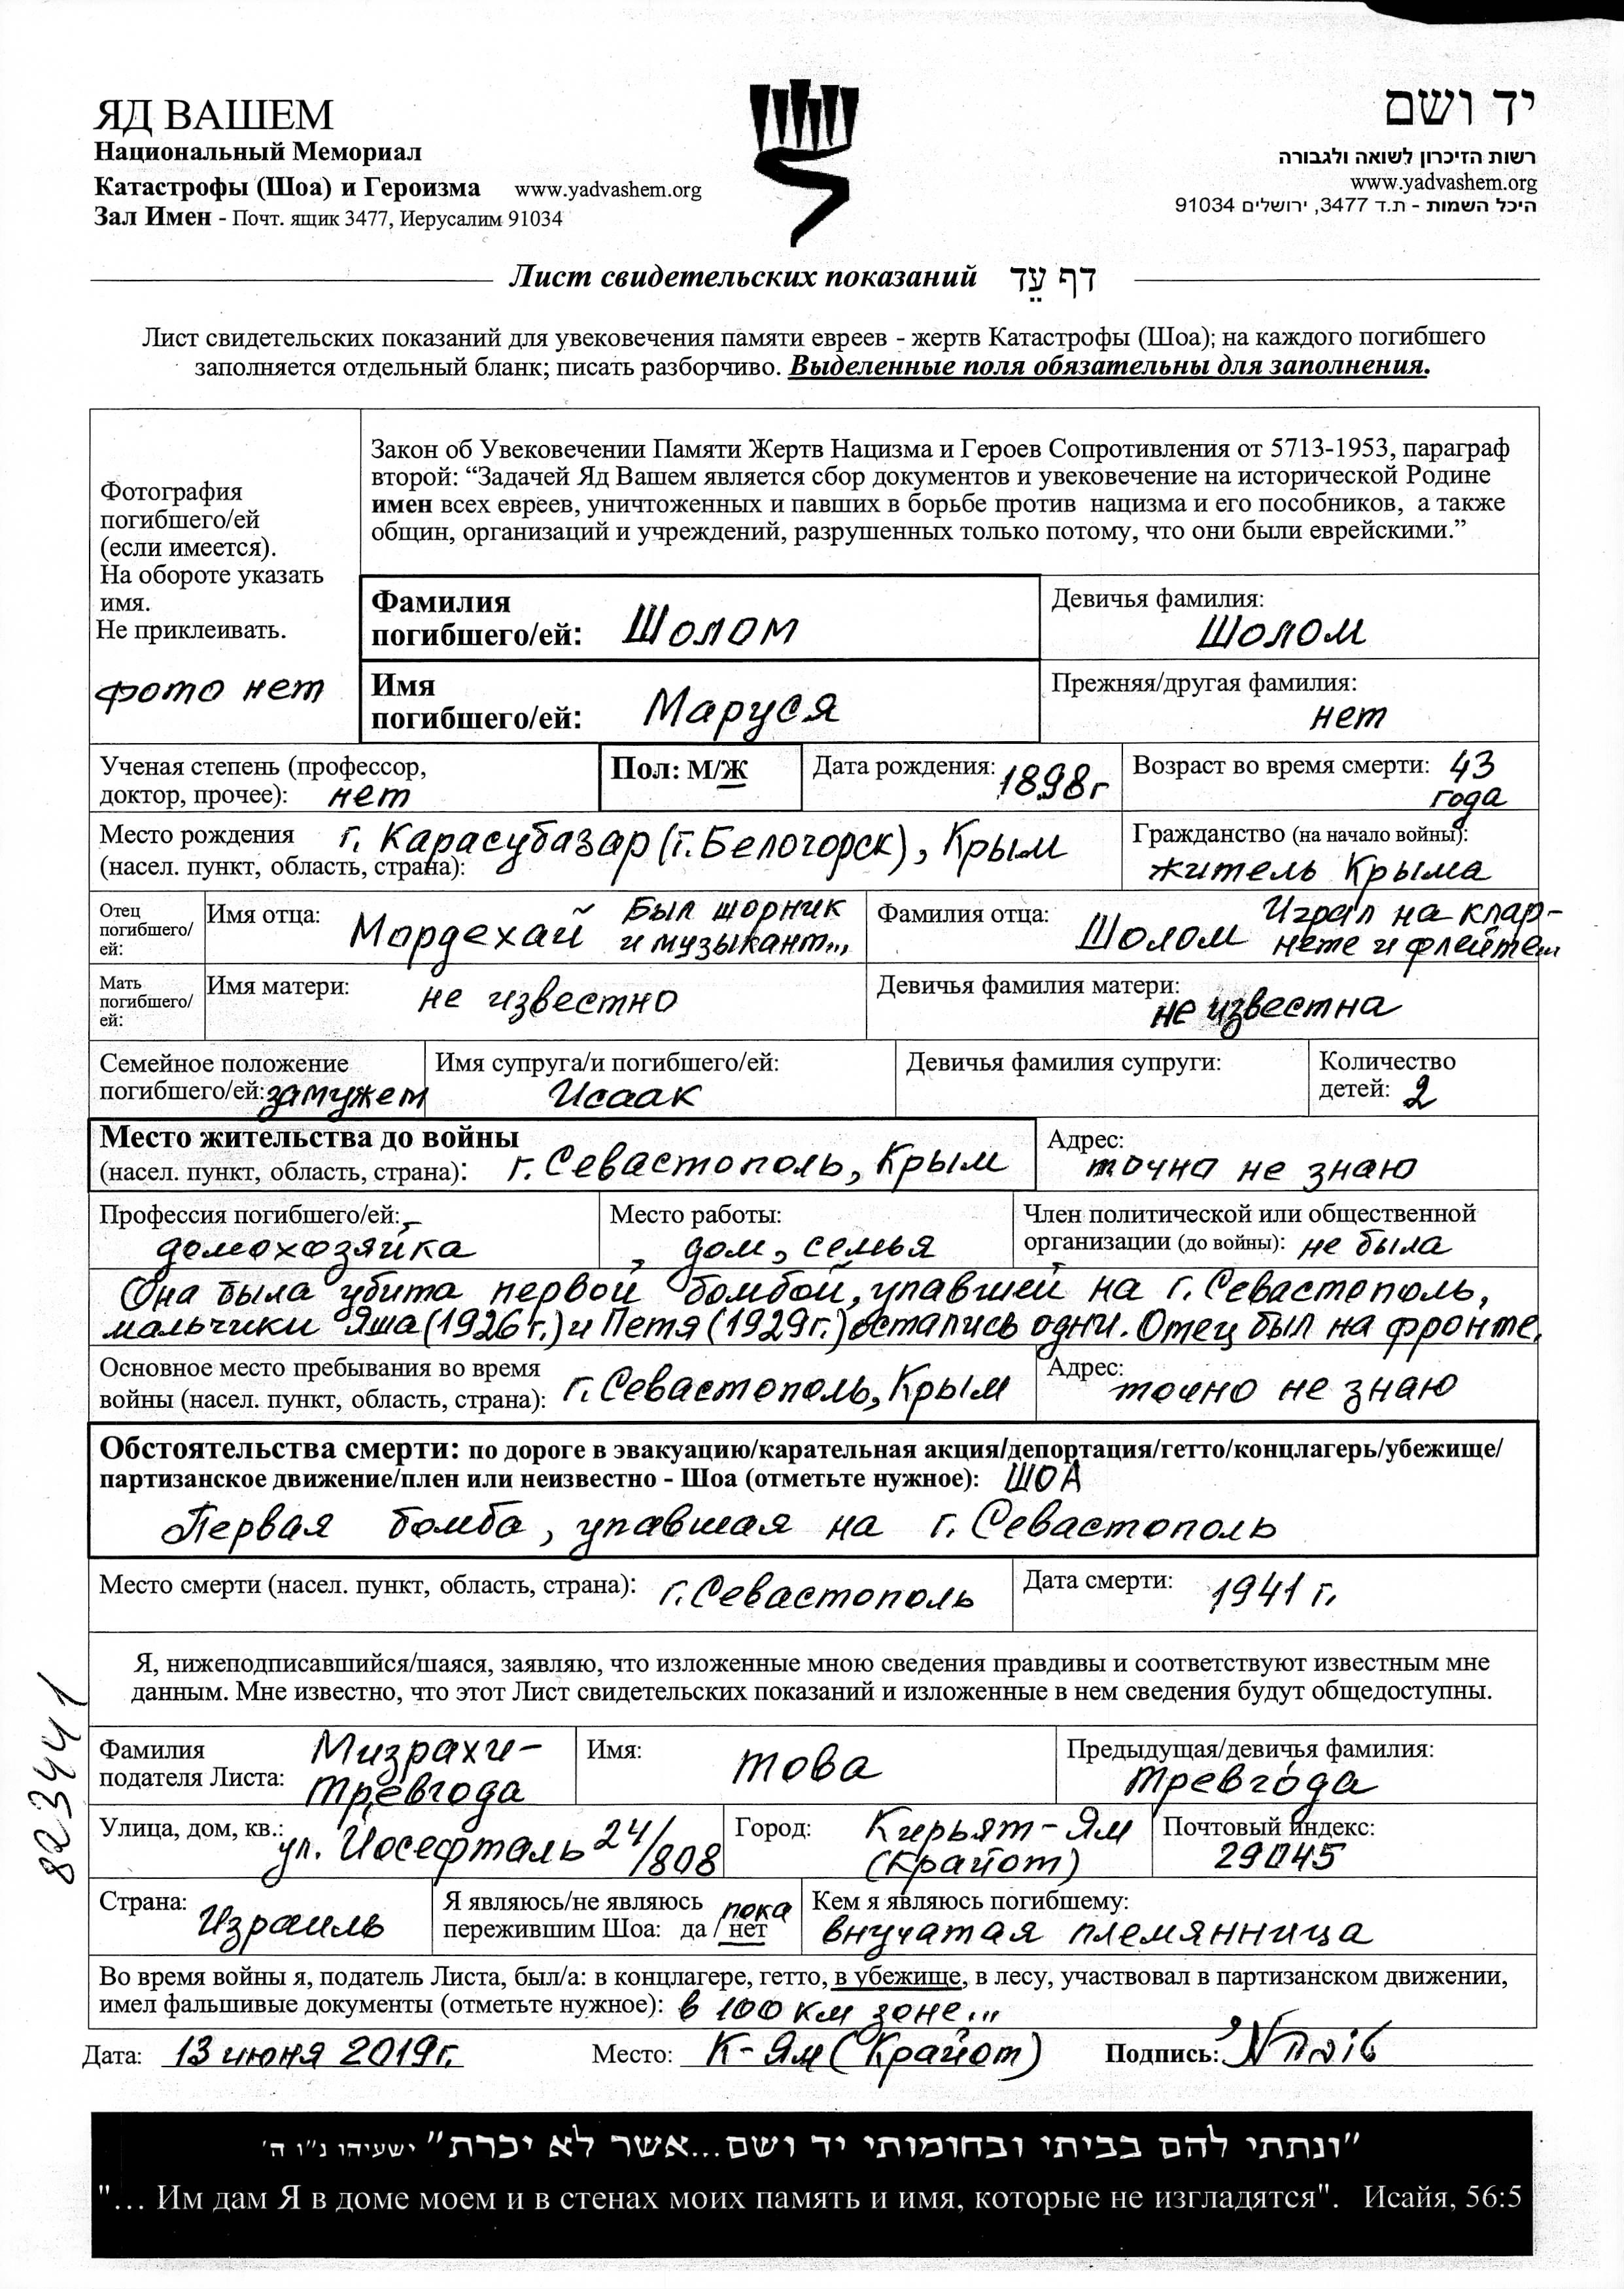 ЯД ВАШЕМ
Национальный Мемориал
Катастрофы (Шоа) и Героизма www.yadvashem.org
Зал Имен - Почт. ящик 3477, Иерусалим 91034
יד ושם
רשות הזיכרון לשואה ולגבורה
www.yadvashem.org
היכל השמות - ת.ד 3477, ירושלים 91034
Лист свидетельских показаний דף עֵד
Лист свидетельских показаний для увековечения памяти евреев - жертв Катастрофы (Шоа); на каждого погибшего
заполняется отдельный бланк; писать разборчиво. Выделенные поля обязательны для заполнения.
Фотография
погибшего/ей
(если имеется).
На обороте указать
имя.
Не приклеивать.
фото нет
Закон об Увековечении Памяти Жертв Нацизма и Героев Сопротивления от 5713-1953, параграф
второй: “Задачей Яд Вашем является сбор документов и увековечение на исторической Родине
имен всех евреев, уничтоженных и павших в борьбе против нацизма и его пособников, а также
общин, организаций и учреждений, разрушенных только потому, что они были еврейскими.”
Фамилия
погибшего/ей: Шолом
Девичья фамилия:
Шолом
Имя
погибшего/ей: Маруся
Прежняя/другая фамилия:
нет
Ученая степень (профессор,
доктор, прочее): нет
Пол: М/Ж
Дата рождения: 1898г
Возраст во время смерти: 43
года
Место рождения г. Карасубазар (г. Белогорск), Крым
(насел. пункт, область, страна):
Гражданство (на начало войны):
житель Крыма
Отец
погибшего/
ей:
Имя отца: Мордехай Был шорник
и музыкант...
Фамилия отца: Шолом Играл на клар-
нете и флейте...
Мать
погибшего/
ей:
Имя матери: не известно
Девичья фамилия матери:
не известна
Семейное положение
погибшего/ей: замужем
Имя супруга/и погибшего/ей:
Исаак
Девичья фамилия супруги:
Количество
детей: 2
Место жительства до войны
(насел. пункт, область, страна): г. Севастополь, Крым
Адрес:
точно не знаю
Профессия погибшего/ей:
домохозяйка
Место работы:
дом, семья
Член политической или общественной
организации (до войны): не была
Она была убита первой бомбой, упавшей на г. Севастополь,
мальчики Яша (1926г.) и Петя (1929г.) остались одни. Отец был на фронте.
Основное место пребывания во время
войны (насел. пункт, область, страна): г. Севастополь, Крым
Адрес:
точно не знаю
Обстоятельства смерти: по дороге в эвакуацию/карательная акция/депортация/гетто/концлагерь/убежище/
партизанское движение/плен или неизвестно - Шоа (отметьте нужное): ШОА
Первая бомба, упавшая на г. Севастополь
Место смерти (насел. пункт, область, страна): г. Севастополь
Дата смерти: 1941 г.
Я, нижеподписавшийся/шаяся, заявляю, что изложенные мною сведения правдивы и соответствуют известным мне
данным. Мне известно, что этот Лист свидетельских показаний и изложенные в нем сведения будут общедоступны.
823441
Фамилия
подателя Листа: Мизрахи-
Тревгода
Имя: Това
Предыдущая/девичья фамилия:
Тревгода
Улица, дом, кв.: ул. Йосефталь 24/808
Город: Кирьят-Ям
(Крайот)
Почтовый индекс:
29045
Страна: Израиль
Я являюсь/не являюсь пока
пережившим Шоа: да / нет
Кем я являюсь погибшему:
внучатая племянница
Во время войны я, податель Листа, был/а: в концлагере, гетто, в убежище, в лесу, участвовал в партизанском движении,
имел фальшивые документы (отметьте нужное): в 100 км зоне...
Дата: 13 июня 2019г. Место: К-Ям (Крайот) Подпись:
"ונתתי להם בביתי ובחומותי יד ושם...אשר לא יכרת" ישעיהו נ"ו ה'
"... Им дам Я в доме моем и в стенах моих память и имя, которые не изгладятся". Исайя, 56:5